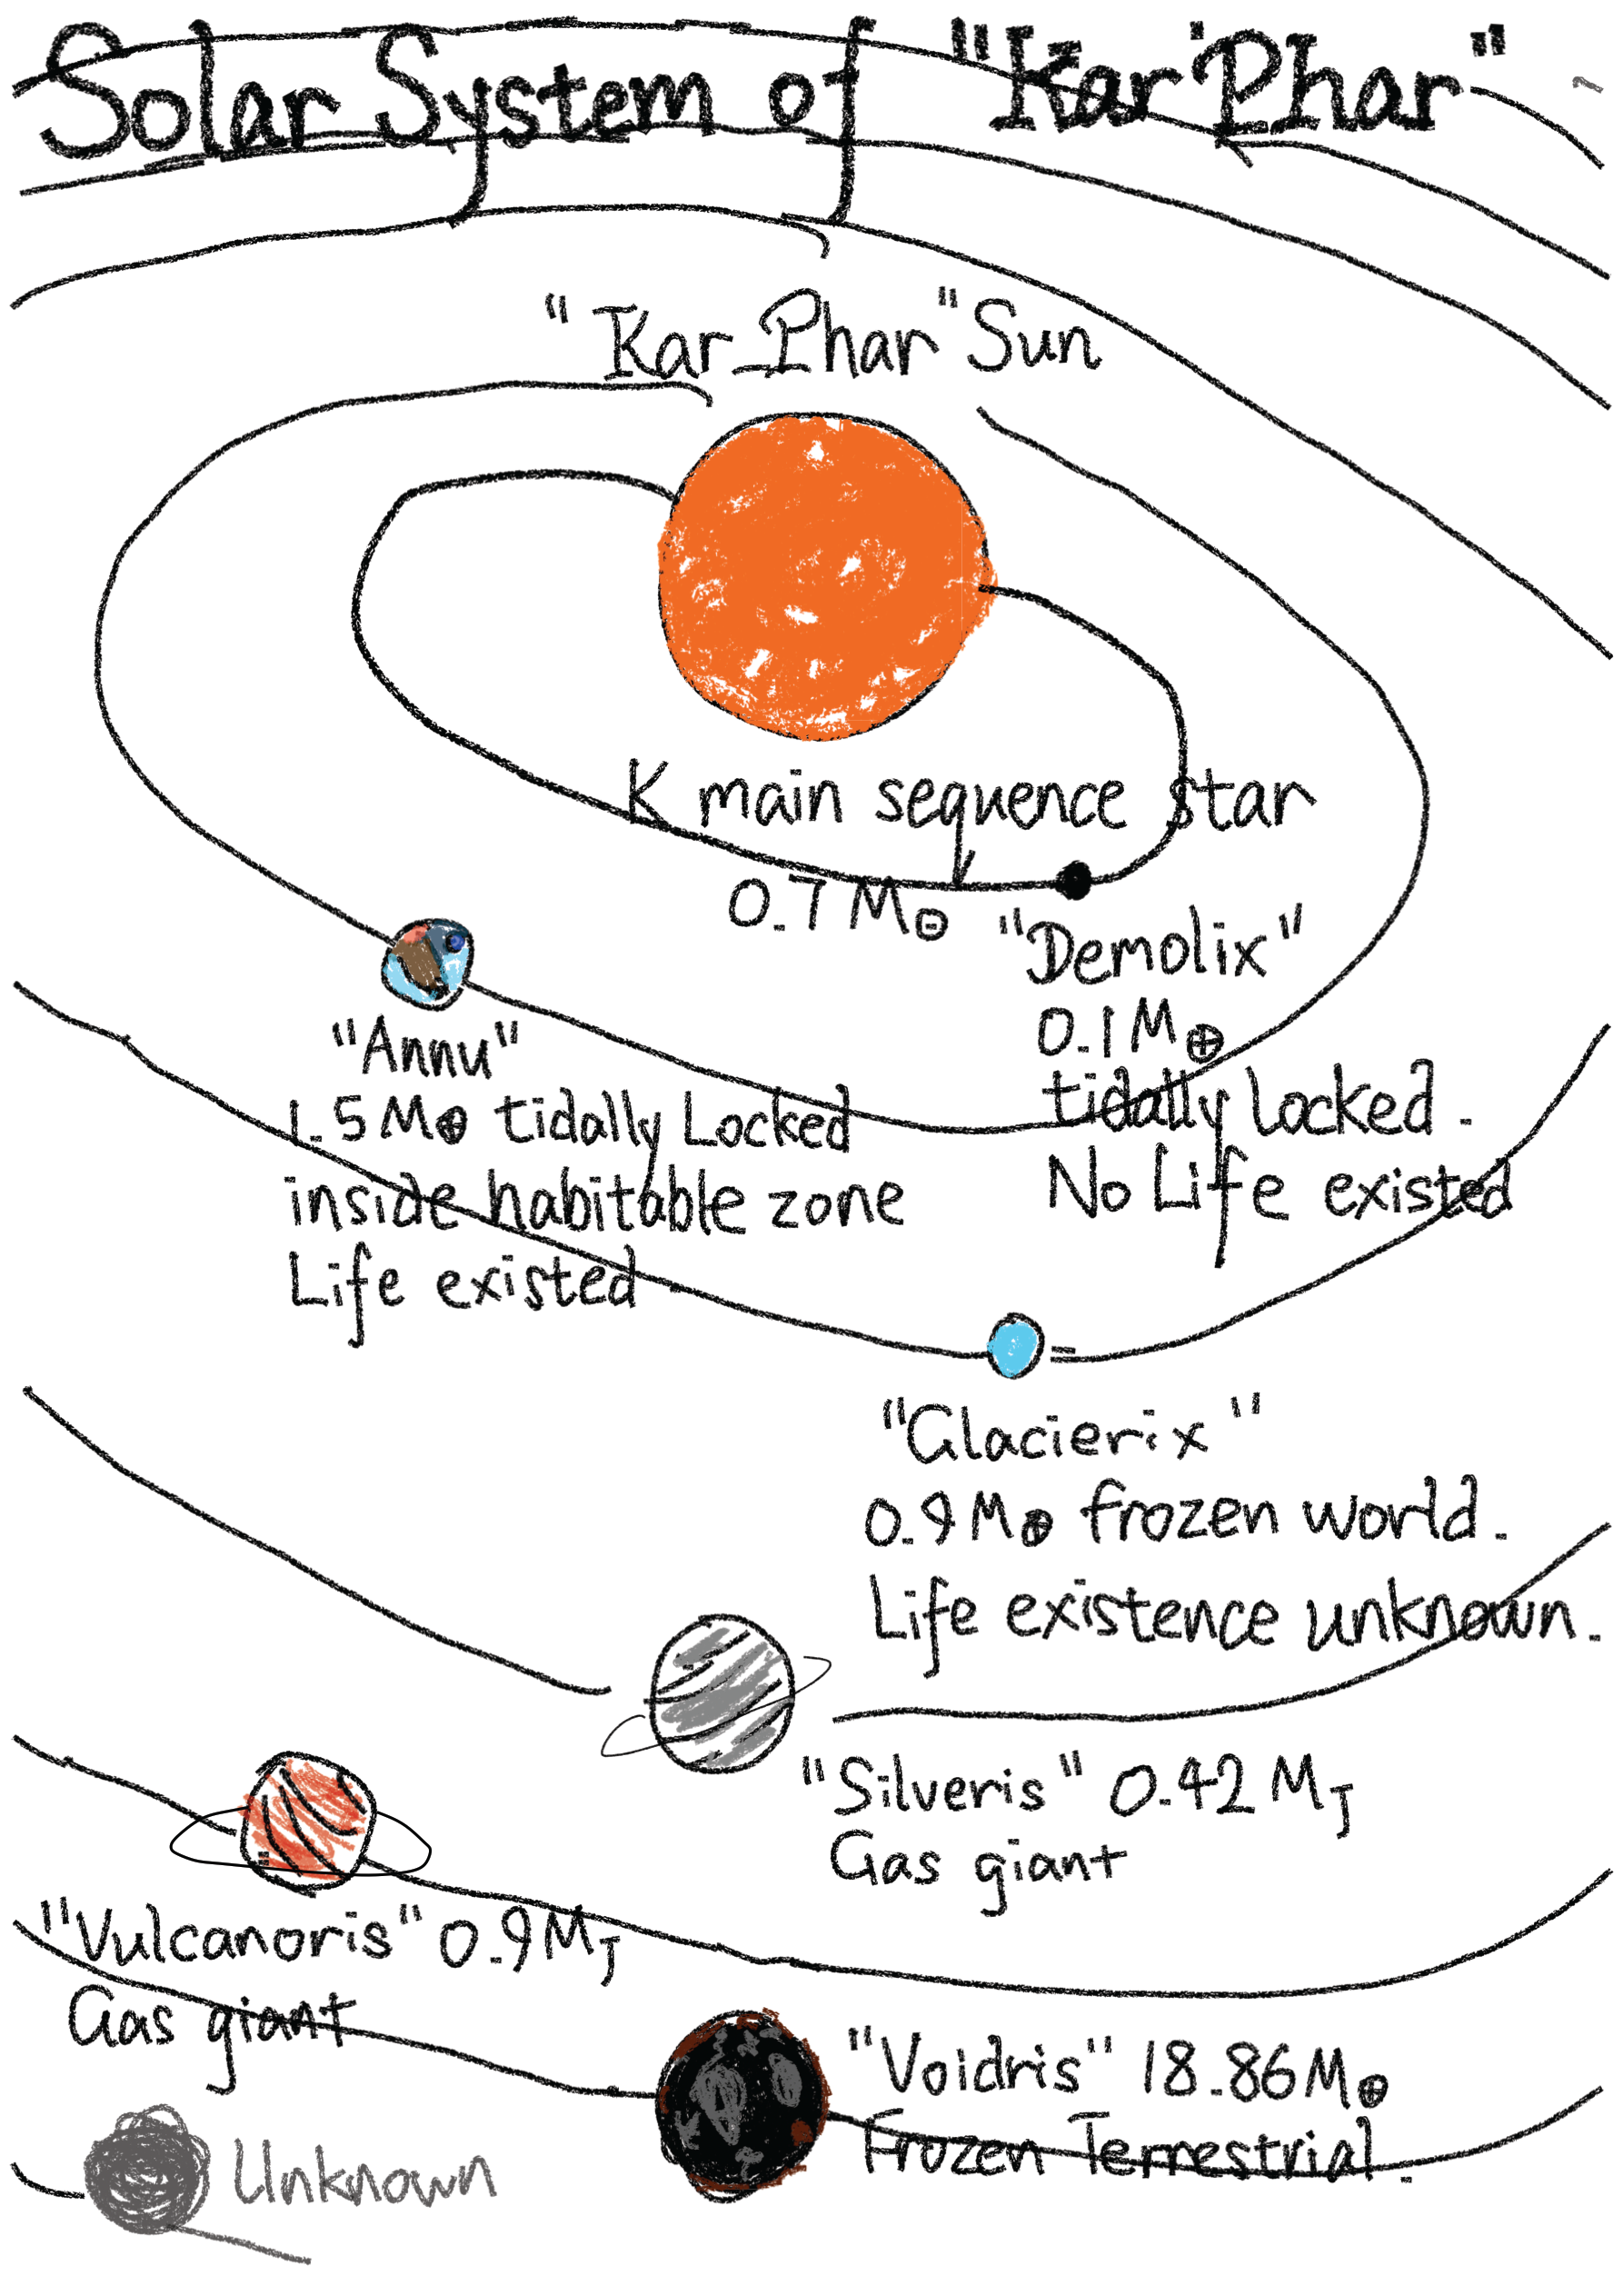 Solar System of "Kar'Phar"
"Kar-Phar" Sun
K main sequence star
0.7 M☉
"Demolix"
0.1 M⊕
tidally locked.
No Life existed
"Annu"
1.5 M⊕ tidally Locked
inside habitable zone
Life existed.
"Glacierix"
0.9 M⊕ frozen world.
Life existence unknown.
"Silveris" 0.42 MJ
Gas giant
"Vulcanoris" 0.9 MJ
Gas giant
"Voidris" 18.86 M⊕
Frozen Terrestrial.
Unknown